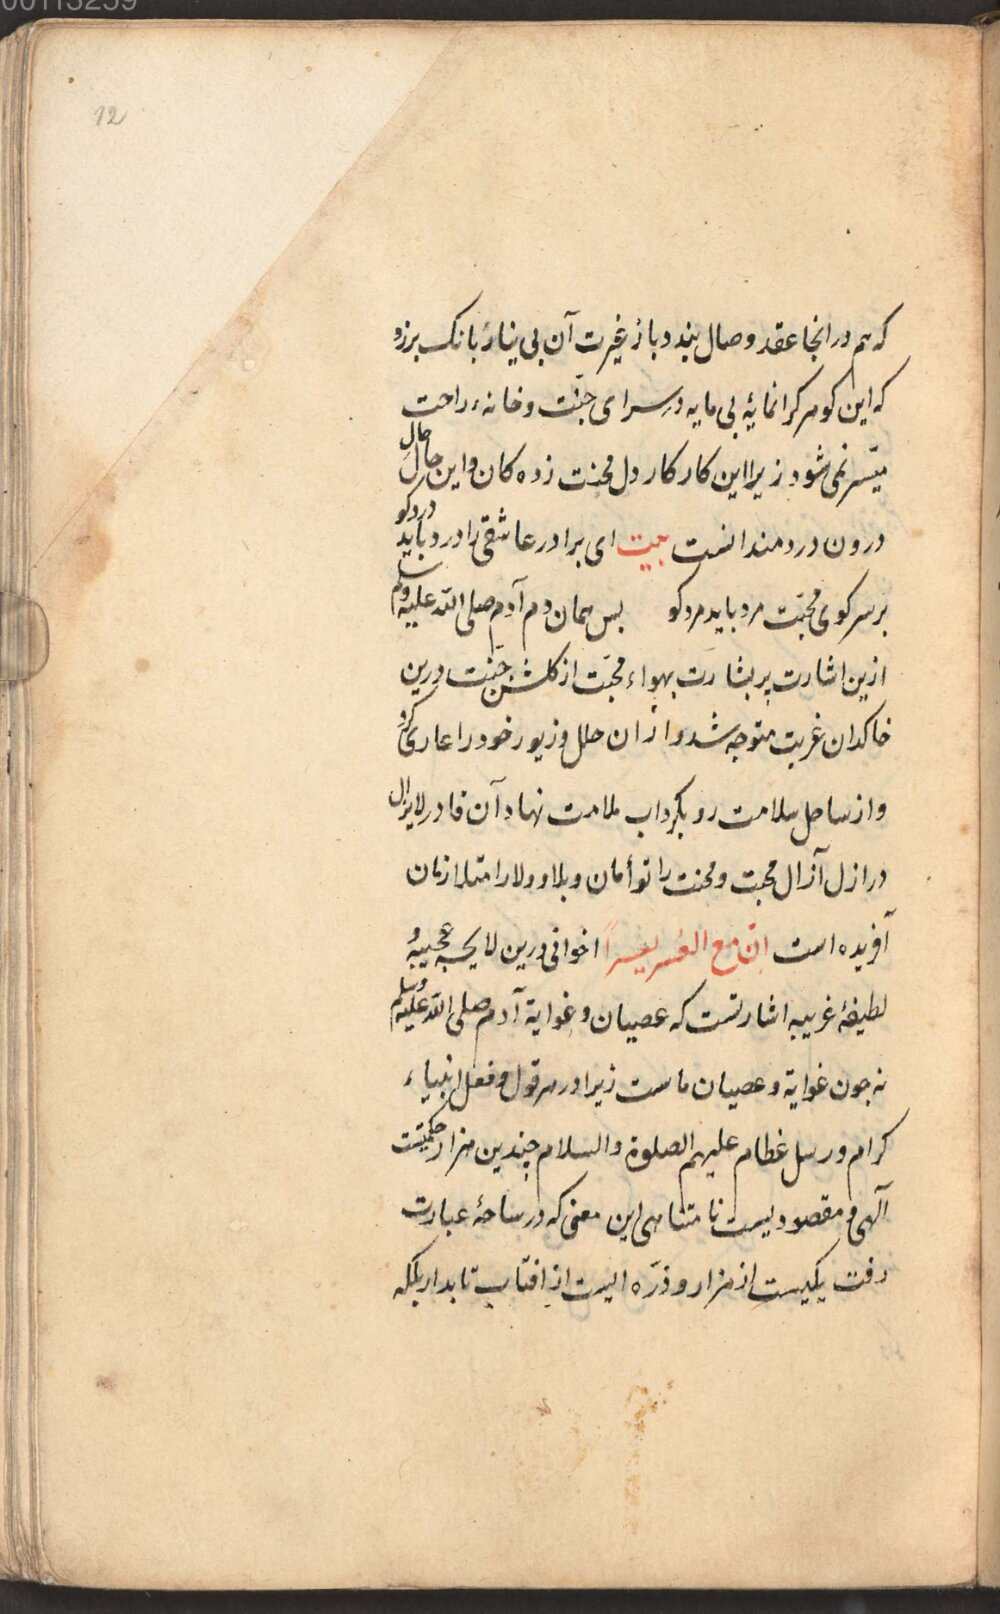 00113259
12
که هم در انجا عقد وصال بندد باز غیرت آن بی نیاز بانک برزد
که این کوهر کرانمایهٔ بی مایه در سرای جنّت و خانهء راحت
میّسر نمی شود زیرا این کار کار دل محنت زده کان و این حال حال
درون دردمندانست بیت ای برادر عاشقی را درد باید درد کو
بر سر کوی محبّت مرد باید مرد کو بس همان دم آدم صلی الله علیه وسلم
ازین اشارت پر بشارت بهواء محبّت از کلشن جنّت درین
خاکدان غربت متوجه شد و ازان حلل و زیور خود را عاری کرد
و از ساحل سلامت رو بکرداب ملامت نهاد آن قادر لایزال
در ازل آزال محبت و محنت را توأمان و بلا و ولا را متلازمان
آفریده است انّ مع العسر یسراً اخوانی درین لایحهٔ عجیبه و
لطیفهٔ غریبه اشارتست که عصیان و غوایة آدم صلی الله علیه وسلم
نه جون غوایة و عصیان ماست زیرا در هر قول و فعل انبیاء
کرام و رسل عظام علیهم الصلوة والسلام چندین هزار حکمتست
آلهی و مقصودیست نا متناهی این معنی که در ساحهٔ عبارت
رفت یکیست از هزار و ذرّه ایست از افتاب تابدار بلکه